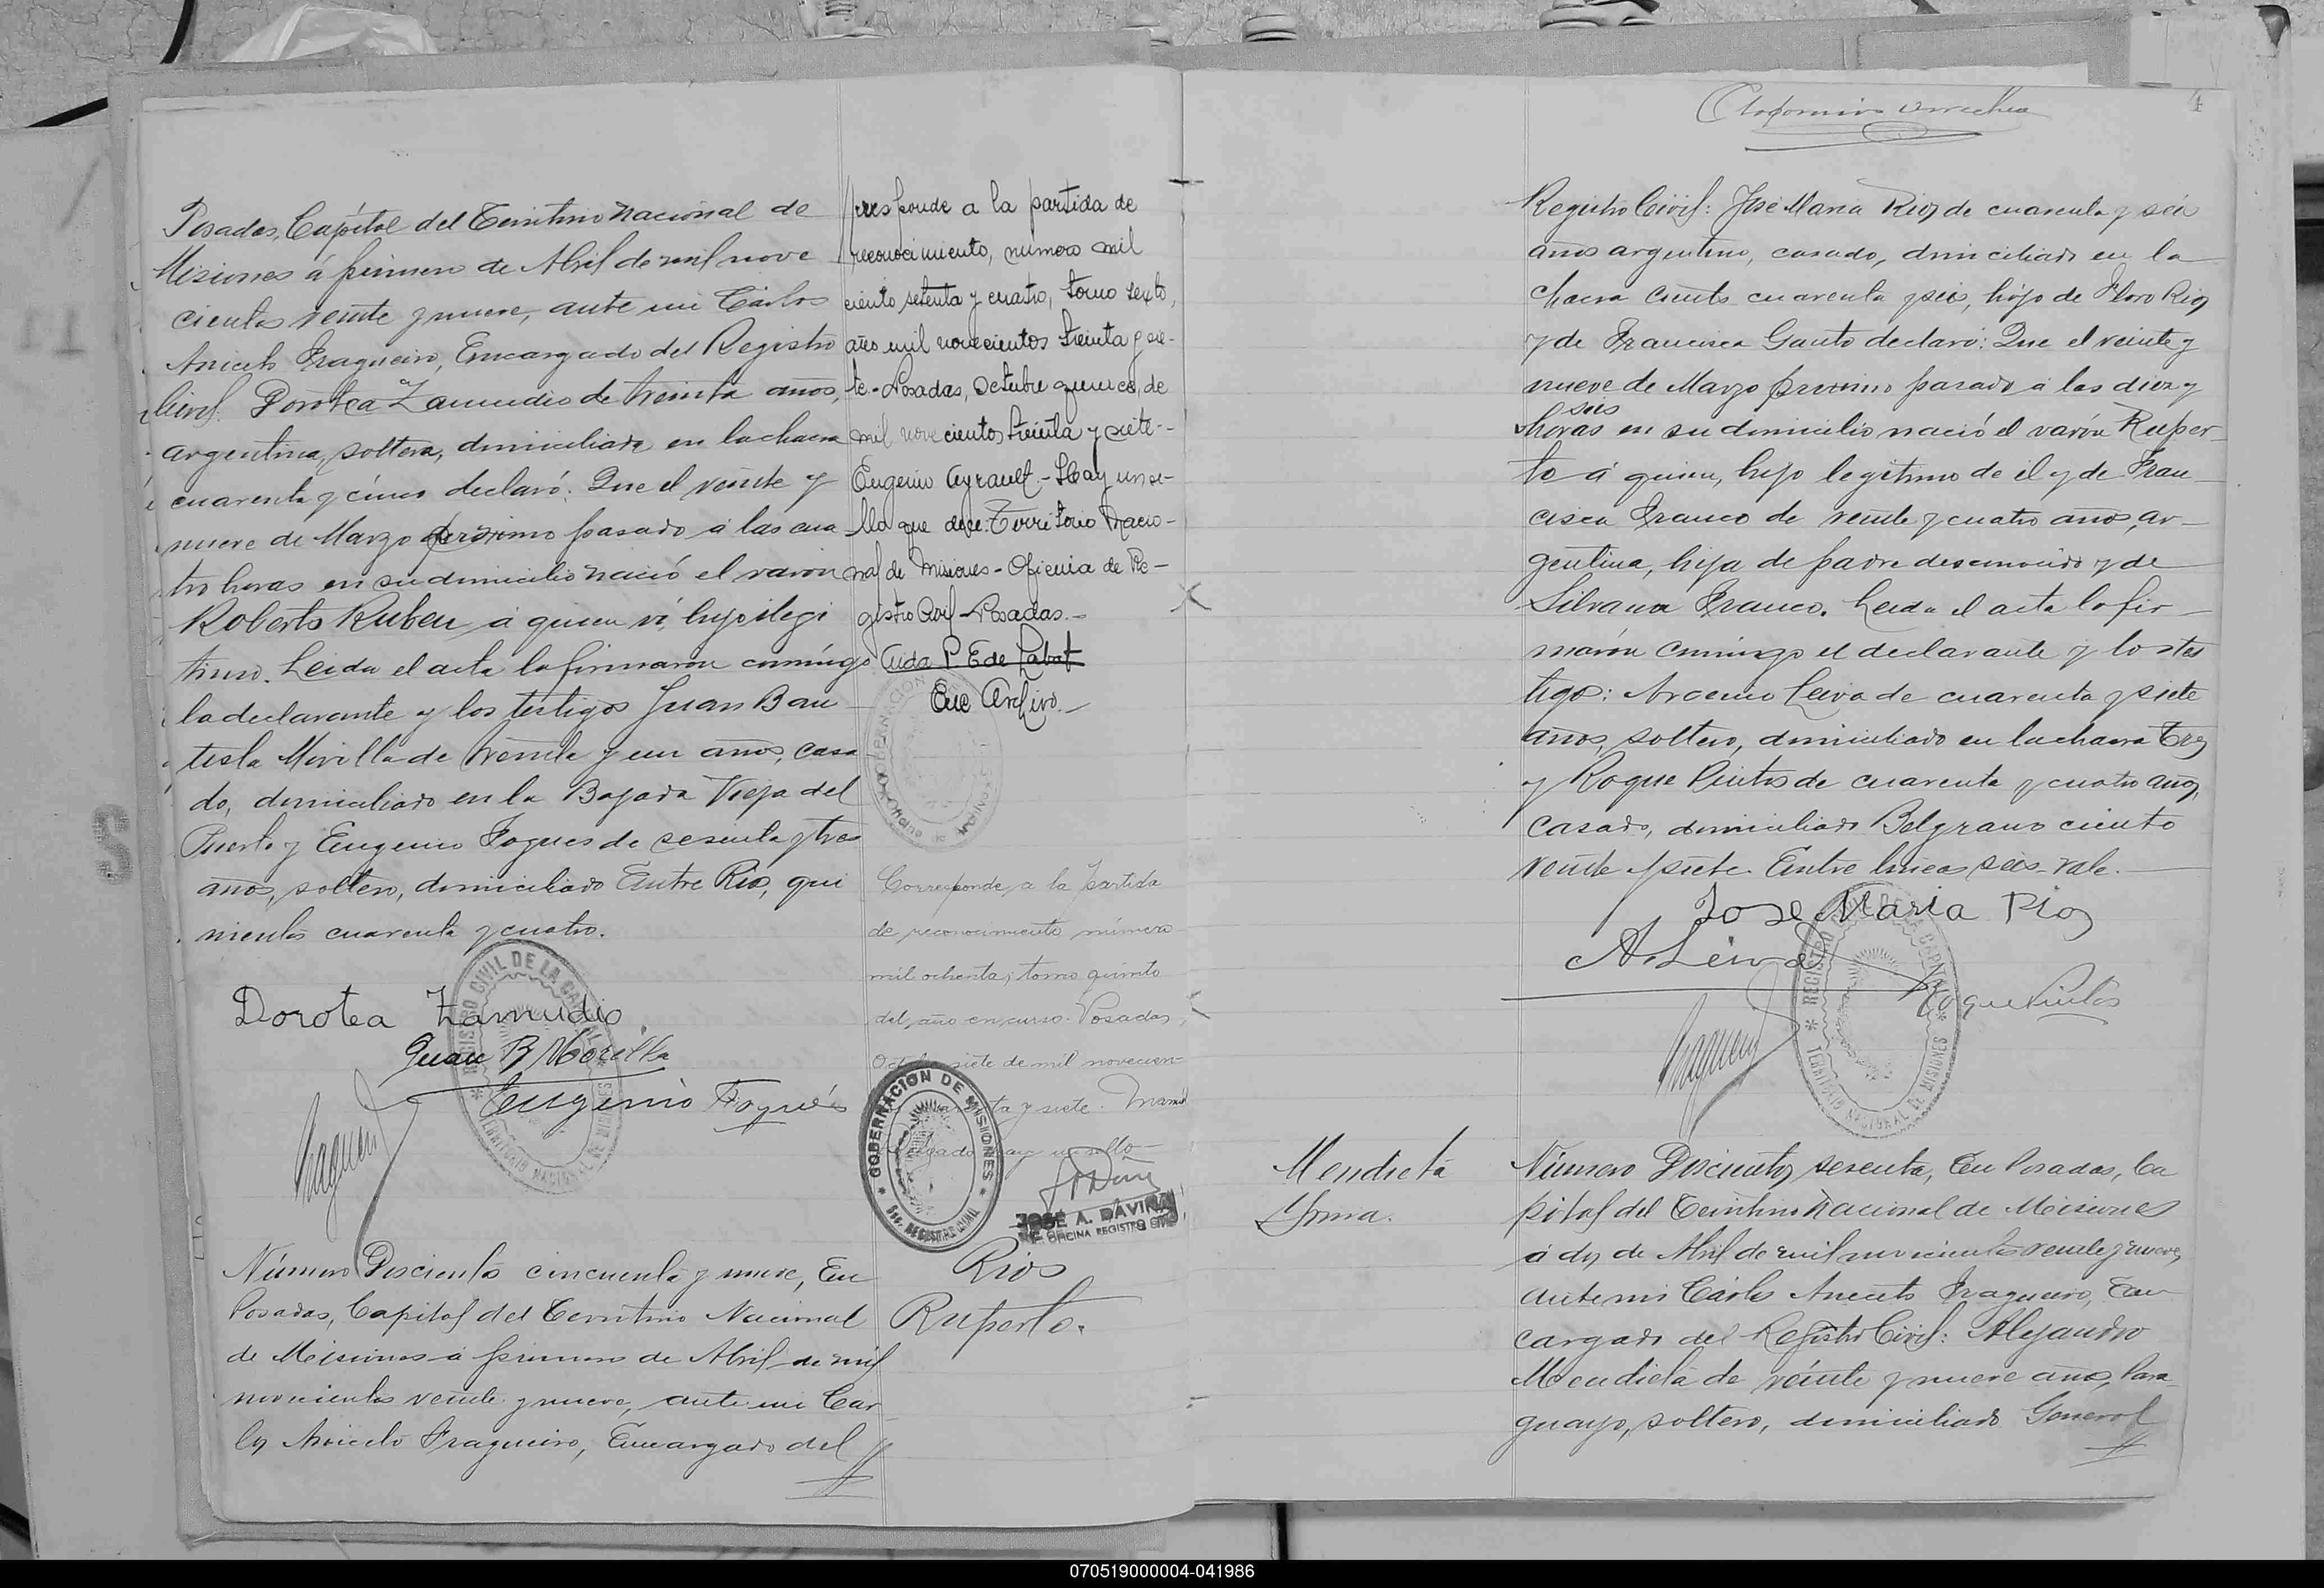 Posadas, Capital del Territorio Nacional de
Misiones á primero de Abril de mil nove
cientos veinte y nueve, ante mi Cárlos
Aniceto Fragueiro, Encargado del Registro
Civil. Dorotea Zamudio de treinta años,
argentina, soltera, domiciliada en la chacra
cuarenta y cinco declaró: Que el veinte y
nueve de Marzo próximo pasado á las cua
tro horas en su domicilio nació el varón
Roberto Ruben á quien ví, hijo ilegi
timo. Leida el acta la firmaron conmigo
la declarante y los testigos Juan Bau
tista Morilla de treinta y un años, casa
do, domiciliado en la Bajada Vieja del
Puerto y Eugenio Fogues de sesenta y tres
años, soltero, domiciliado Entre Rios, qui
nientos cuarenta y cuatro.
Dorotea Zamudio
Juan B Morilla
Eugenio Fogués
REGISTRO CIVIL DE LA CAPITAL
TERRITORIO NACIONAL DE MISIONES
Número Doscientos cincuenta y nueve, En
Posadas, Capital del Territorio Nacional
de Misiones á primero de Abril de mil
novecientos veinte y nueve, ante mi Car
los Aniceto Fragueiro, Encargado del
rresponde a la partida de
reconocimiento, número mil
ciento setenta y cuatro, tomo sexto,
año mil novecientos treinta y sie-
te.- Posadas, Octubre quince, de
mil novecientos treinta y siete.-
Eugenio Ayrault - Hay un se-
llo que dice: Territorio Nacio-
nal de Misiones - Oficina de Re-
gistro Civil - Posadas.-
Aida P. E de Labat
Enc Archivo.-
Corresponde a la partida
de reconocimiento número
mil ochenta, tomo quinto
del año en curso. Posadas,
Octubre siete de mil novecien-
ta y siete.
hay un sello
GOBERNACION DE MISIONES
JOSE A. DAVIÑA
OFICINA REGISTRO CIVIL
Rios
Ruperto.
4
Registro Civil: José Maria Rios de cuarenta y seis
años argentino, casado, domiciliado en la
chacra ciento cuarenta y seis, hijo de Floro Rios
y de Francisca Gauto declaró: Que el veinte y
nueve de Marzo próximo pasado á las diez y
seis
horas en su domicilio nació el varón Ruper
to á quien, hijo legitimo de él y de Fran
cisca Franco de veinte y cuatro años, ar
gentina, hija de padre desconocido y de
Silvana Franco. Leida el acta la fir
maron conmigo el declarante y los tes
tigos: Arcenio Leiva de cuarenta y siete
años, soltero, domiciliado en la chacra Tres
y Roque Pintos de cuarenta y cuatro años,
casado, domiciliado Belgrano ciento
veinte y siete. Entre lineas seis - vale.
Jose Maria Rios
A. Leiva
Roque Pintos
REGISTRO CIVIL DE LA CAPITAL
TERRITORIO NACIONAL DE MISIONES
Mendieta
Irma.
Número Doscientos sesenta, En Posadas, Ca
pital del Territorio Nacional de Misiones
á dos de Abril de mil novecientos veinte y nueve,
ante mi Cárlos Aniceto Fragueiro, En
cargado del Registro Civil: Alejandro
Mendieta de veinte y nueve años, Para
guayo, soltero, domiciliado General
070519000004-041986